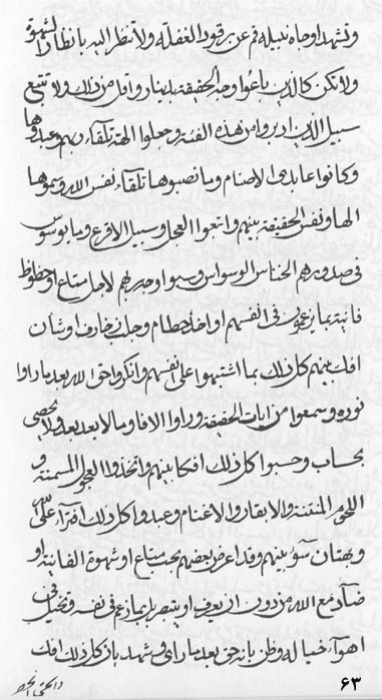 وتشهد اوجاه نبيله قم عن رقود الغفلة ولا تنظر اليه بانظار الشهوة
ولا تكن كالذين باعوا وجه الحقيقة بدينار واقل من ذلك ولا تتبع
سبيل الذين ادبروا من هذه الفئة وجعلوا الهة تلقاء ربهم وعبدوها
وكانوا عابدي الاصنام وما نصبوها تلقاء نفس الله وسموها
الها ونفس الحقيقة بينهم واتبعوا العجل وسبيل الاقرع وما يوسوس
في صدورهم الخناس الوسواس وسبوا وحيرهم لاجل متاع او حظوظ
فانية بما زعم في انفسهم او اخذ حطام وجلب زخارف او شان
افك بينهم كل ذلك بما اشتبهوا على انفسهم وانكروا حق الله بعد ما راوا
نوره وسمعوا من ايات الحقيقة وراوا الافا وما لا بعد يعد ولا يحصى
بحساب وحسبوا كل ذلك افكا بينهم واتخذوا العجول المسمنة و
اللحوم المنتنة والابقار والاغنام وعبدوا كل ذلك افتراء على
وبهتان سوء بينهم وقد اعرض بعضهم بحب متاع او شهوة الفانية او
ضاد مع الله من دون ان يعرف او يتبصر بل بما زعم في نفسه وتخيل في
اهواء خياله وظن بانه حق بعد ما راى وشهد بان كل ذلك افك
۶۳